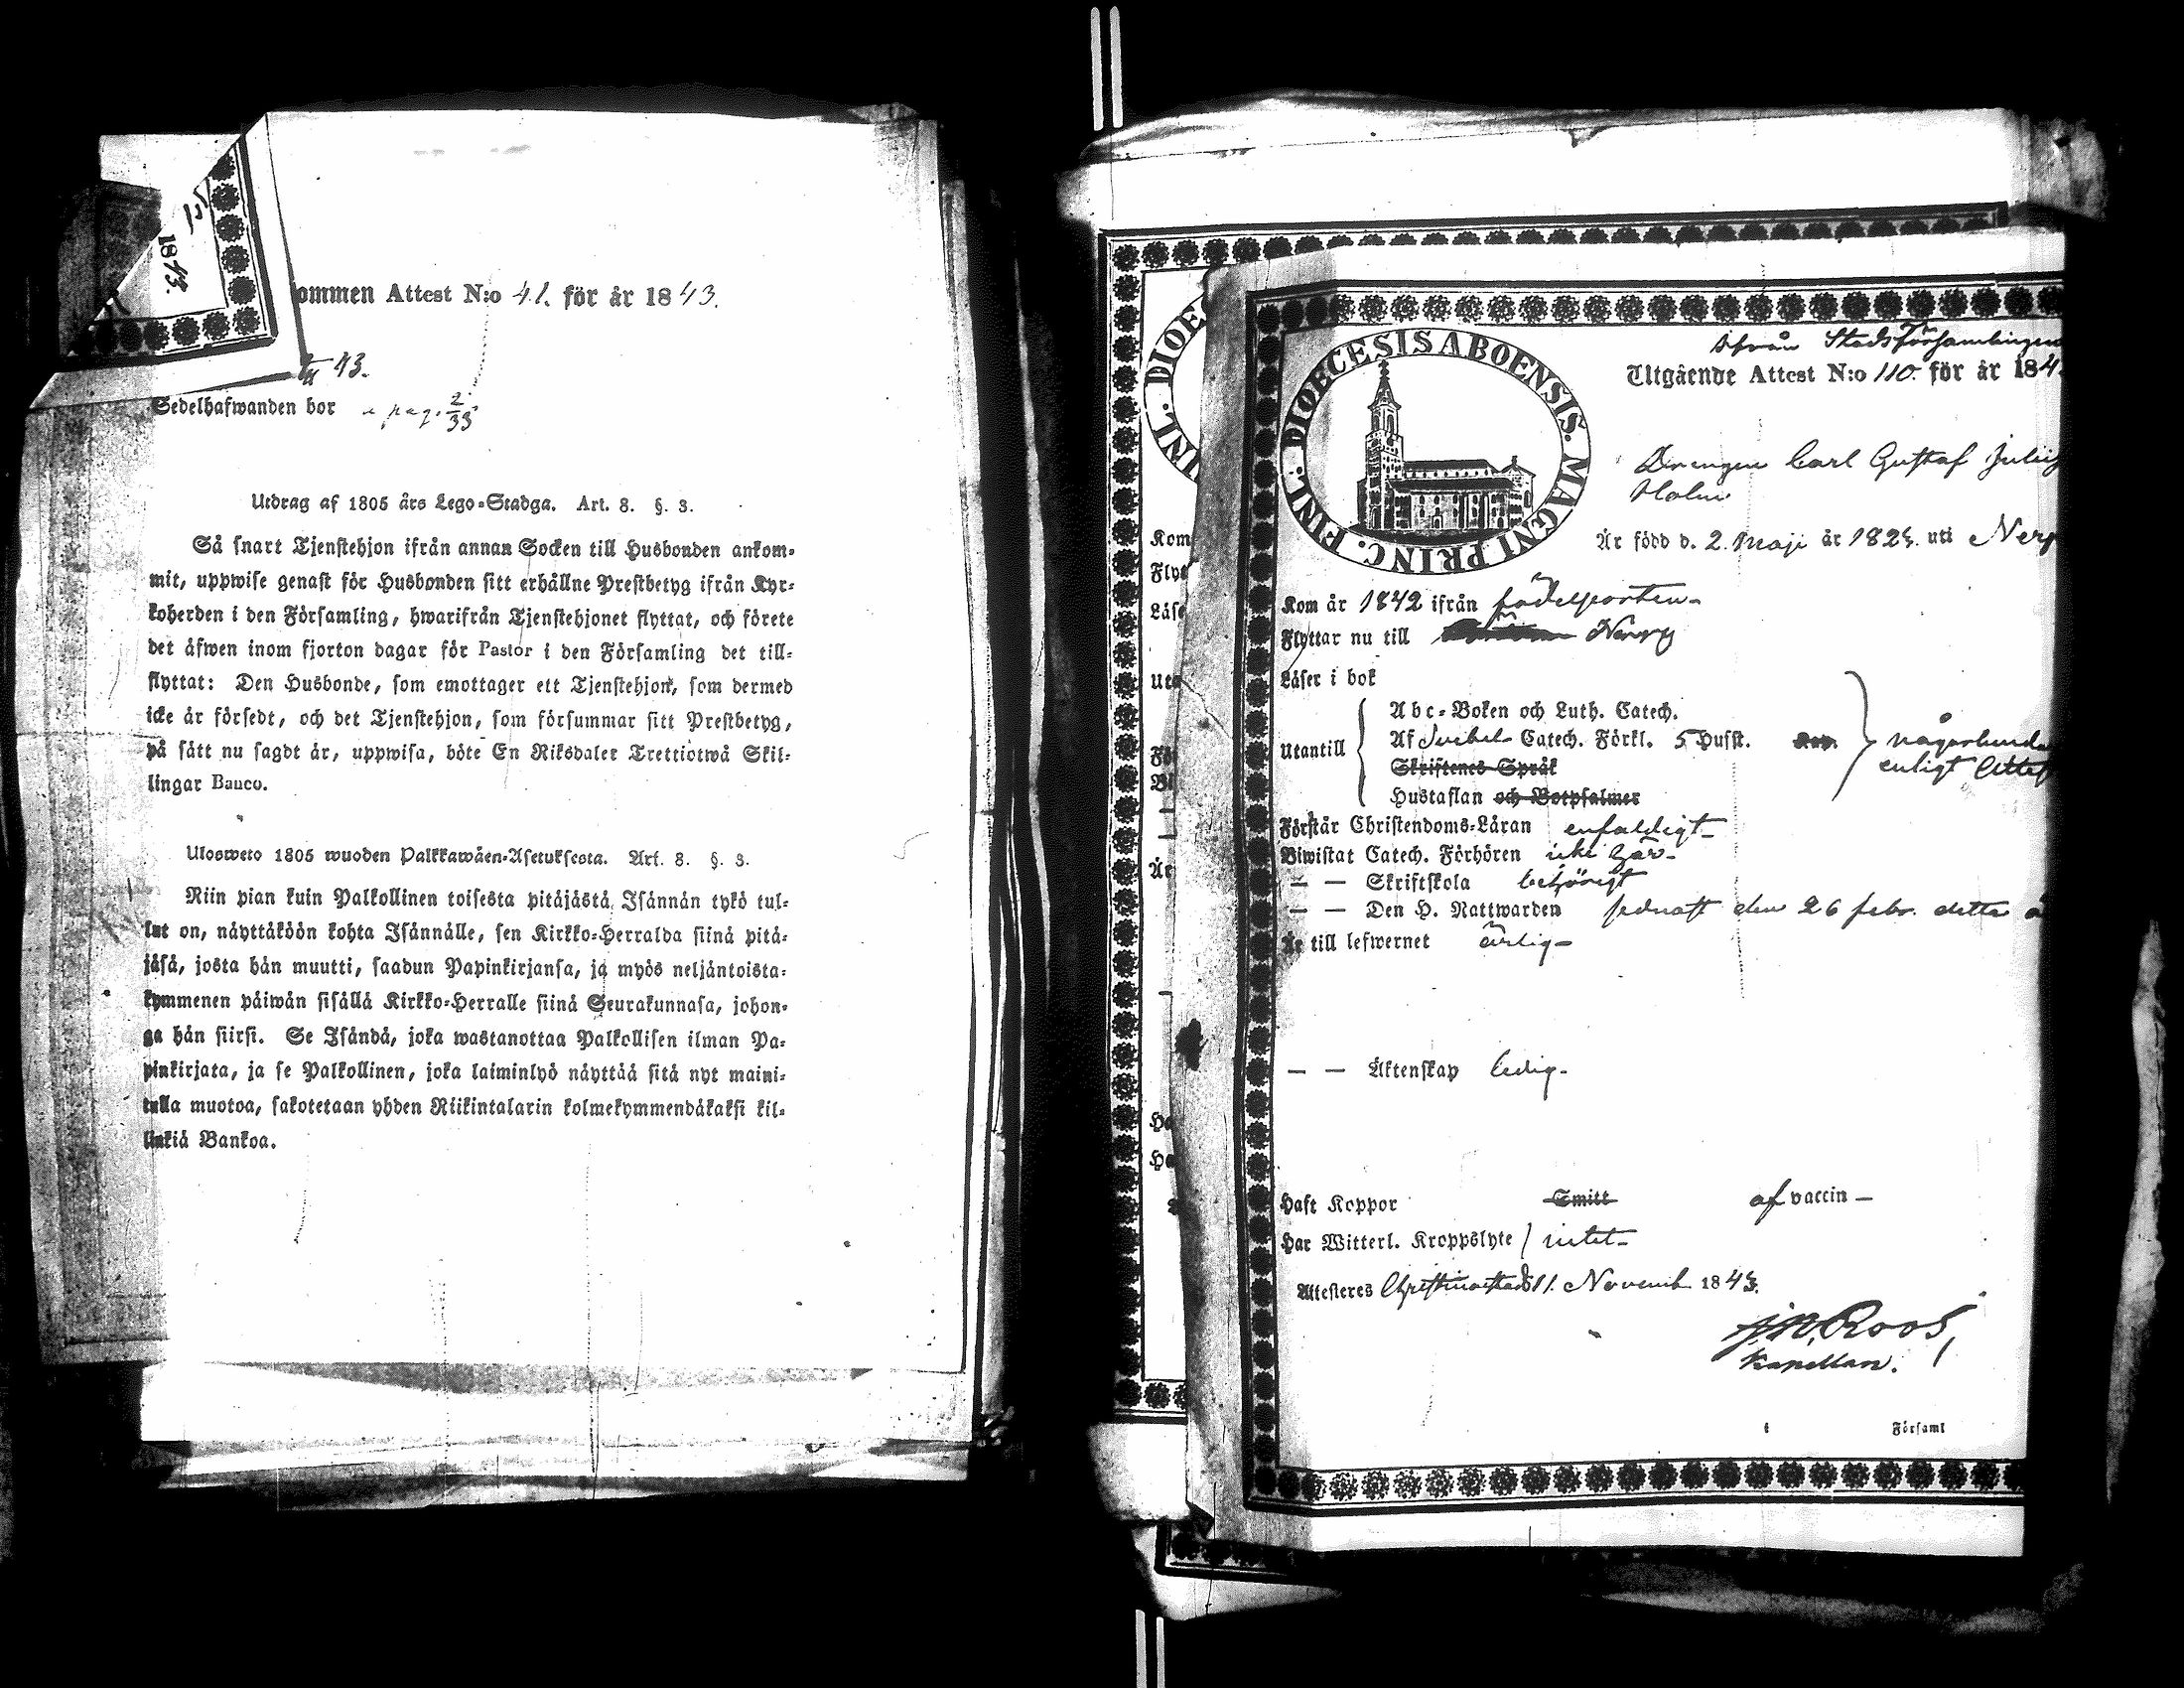 15
1843.
ommen Attest N:o 41. för år 1843.
43.
Sedelhafwanden bor pag. 2/33
Utdrag af 1805 års Lego-Stadga. Art. 8. §. 3.
Så snart Tjenstehjon ifrån annan Socken till Husbonden ankom-
mit, uppwise genast för Husbonden sitt erhållne Prestbetyg ifrån Kyr-
koherden i den Församling, hwarifrån Tjenstehjonet flyttat, och förete
det äfwen inom fjorton dagar för Pastor i den Församling det till-
flyttat: Den Husbonde, som emottager ett Tjenstehjon, som dermed
icke är försedt, och det Tjenstehjon, som försummar sitt Prestbetyg,
på sätt nu sagdt är, uppwisa, böte En Riksdaler Trettiotwå Skil-
lingar Banco.
Ulosweto 1805 wuoden Palkkawäen-Asetuksesta. Art. 8. §. 3.
Niin pian kuin Palkollinen toisesta pitäjästä Isännän tykö tul-
lut on, näyttäköön kohta Isännälle, sen Kirkko-Herralda siinä pitä-
jäsä, josta hän muutti, saadun Papinkirjansa, ja myös neljäntoista-
kymmenen päiwän sisällä Kirkko-Herralle siinä Seurakunnasa, johon-
ga hän siirsi. Se Isändä, joka wastanottaa Palkollisen ilman Pa-
pinkirjata, ja se Palkollinen, joka laiminlyö näyttää sitä nyt maini-
tulla muotoa, sakotetaan yhden Riikintalarin kolmekymmendäkaksi kil-
linkiä Bankoa.
DIOE
INL.
Kom
Flyt
Läse
Uta
Fö
Bi
Är
Ha
Ha
DIOECESIS ABOENSIS. MAGNI PRINC. FINL.
ifrån Stadsförsamlingen
Utgående Attest N:o 110. för år 184
Drengen Carl Gustaf
Holm
Är född d. 2. Maji år 1825. uti Nerp
Kom år 1842 ifrån födelseorten
Flyttar nu till Nerpes
Läser i bok
Utantill
Abc-Boken och Luth. Catech.
Af Svebel. Catech. Förkl. 5 Husst.
Skriftenes Språk
Hustaflan och Botpsalmer
någorlunda
enligt Attest
Förstår Christendoms-Läran enfaldigt
Biwistat Catech. Förhören icke här
— — Skriftskola behörigt
— — Den H. Nattwarden sednast den 26 febr. detta å
Är till lefwernet ärlig
— — Äktenskap ledig
Haft Koppor Smitt af vaccin —
Har Witterl. Kroppslyte intet
Attesteres Christinestad d 11. Novemb. 1843.
J.N. Roos,
Kapellan.
i Församl